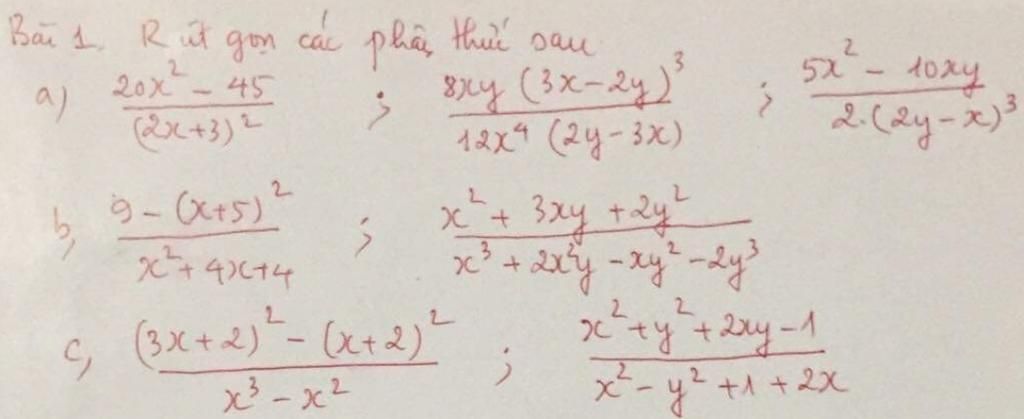 Bài 1. Rút gọn các phân thức sau
a) (20x² - 45)/((2x+3)²) ; (8xy (3x-2y)³)/(12x⁴ (2y-3x)) ; (5x² - 10xy)/(2.(2y-x)³)
b, (9 - (x+5)²)/(x²+4x+4) ; (x² + 3xy + 2y²)/(x³ + 2x²y - xy² - 2y³)
c, ((3x+2)² - (x+2)²)/(x³ - x²) ; (x²+y²+2xy-1)/(x²-y²+1+2x)